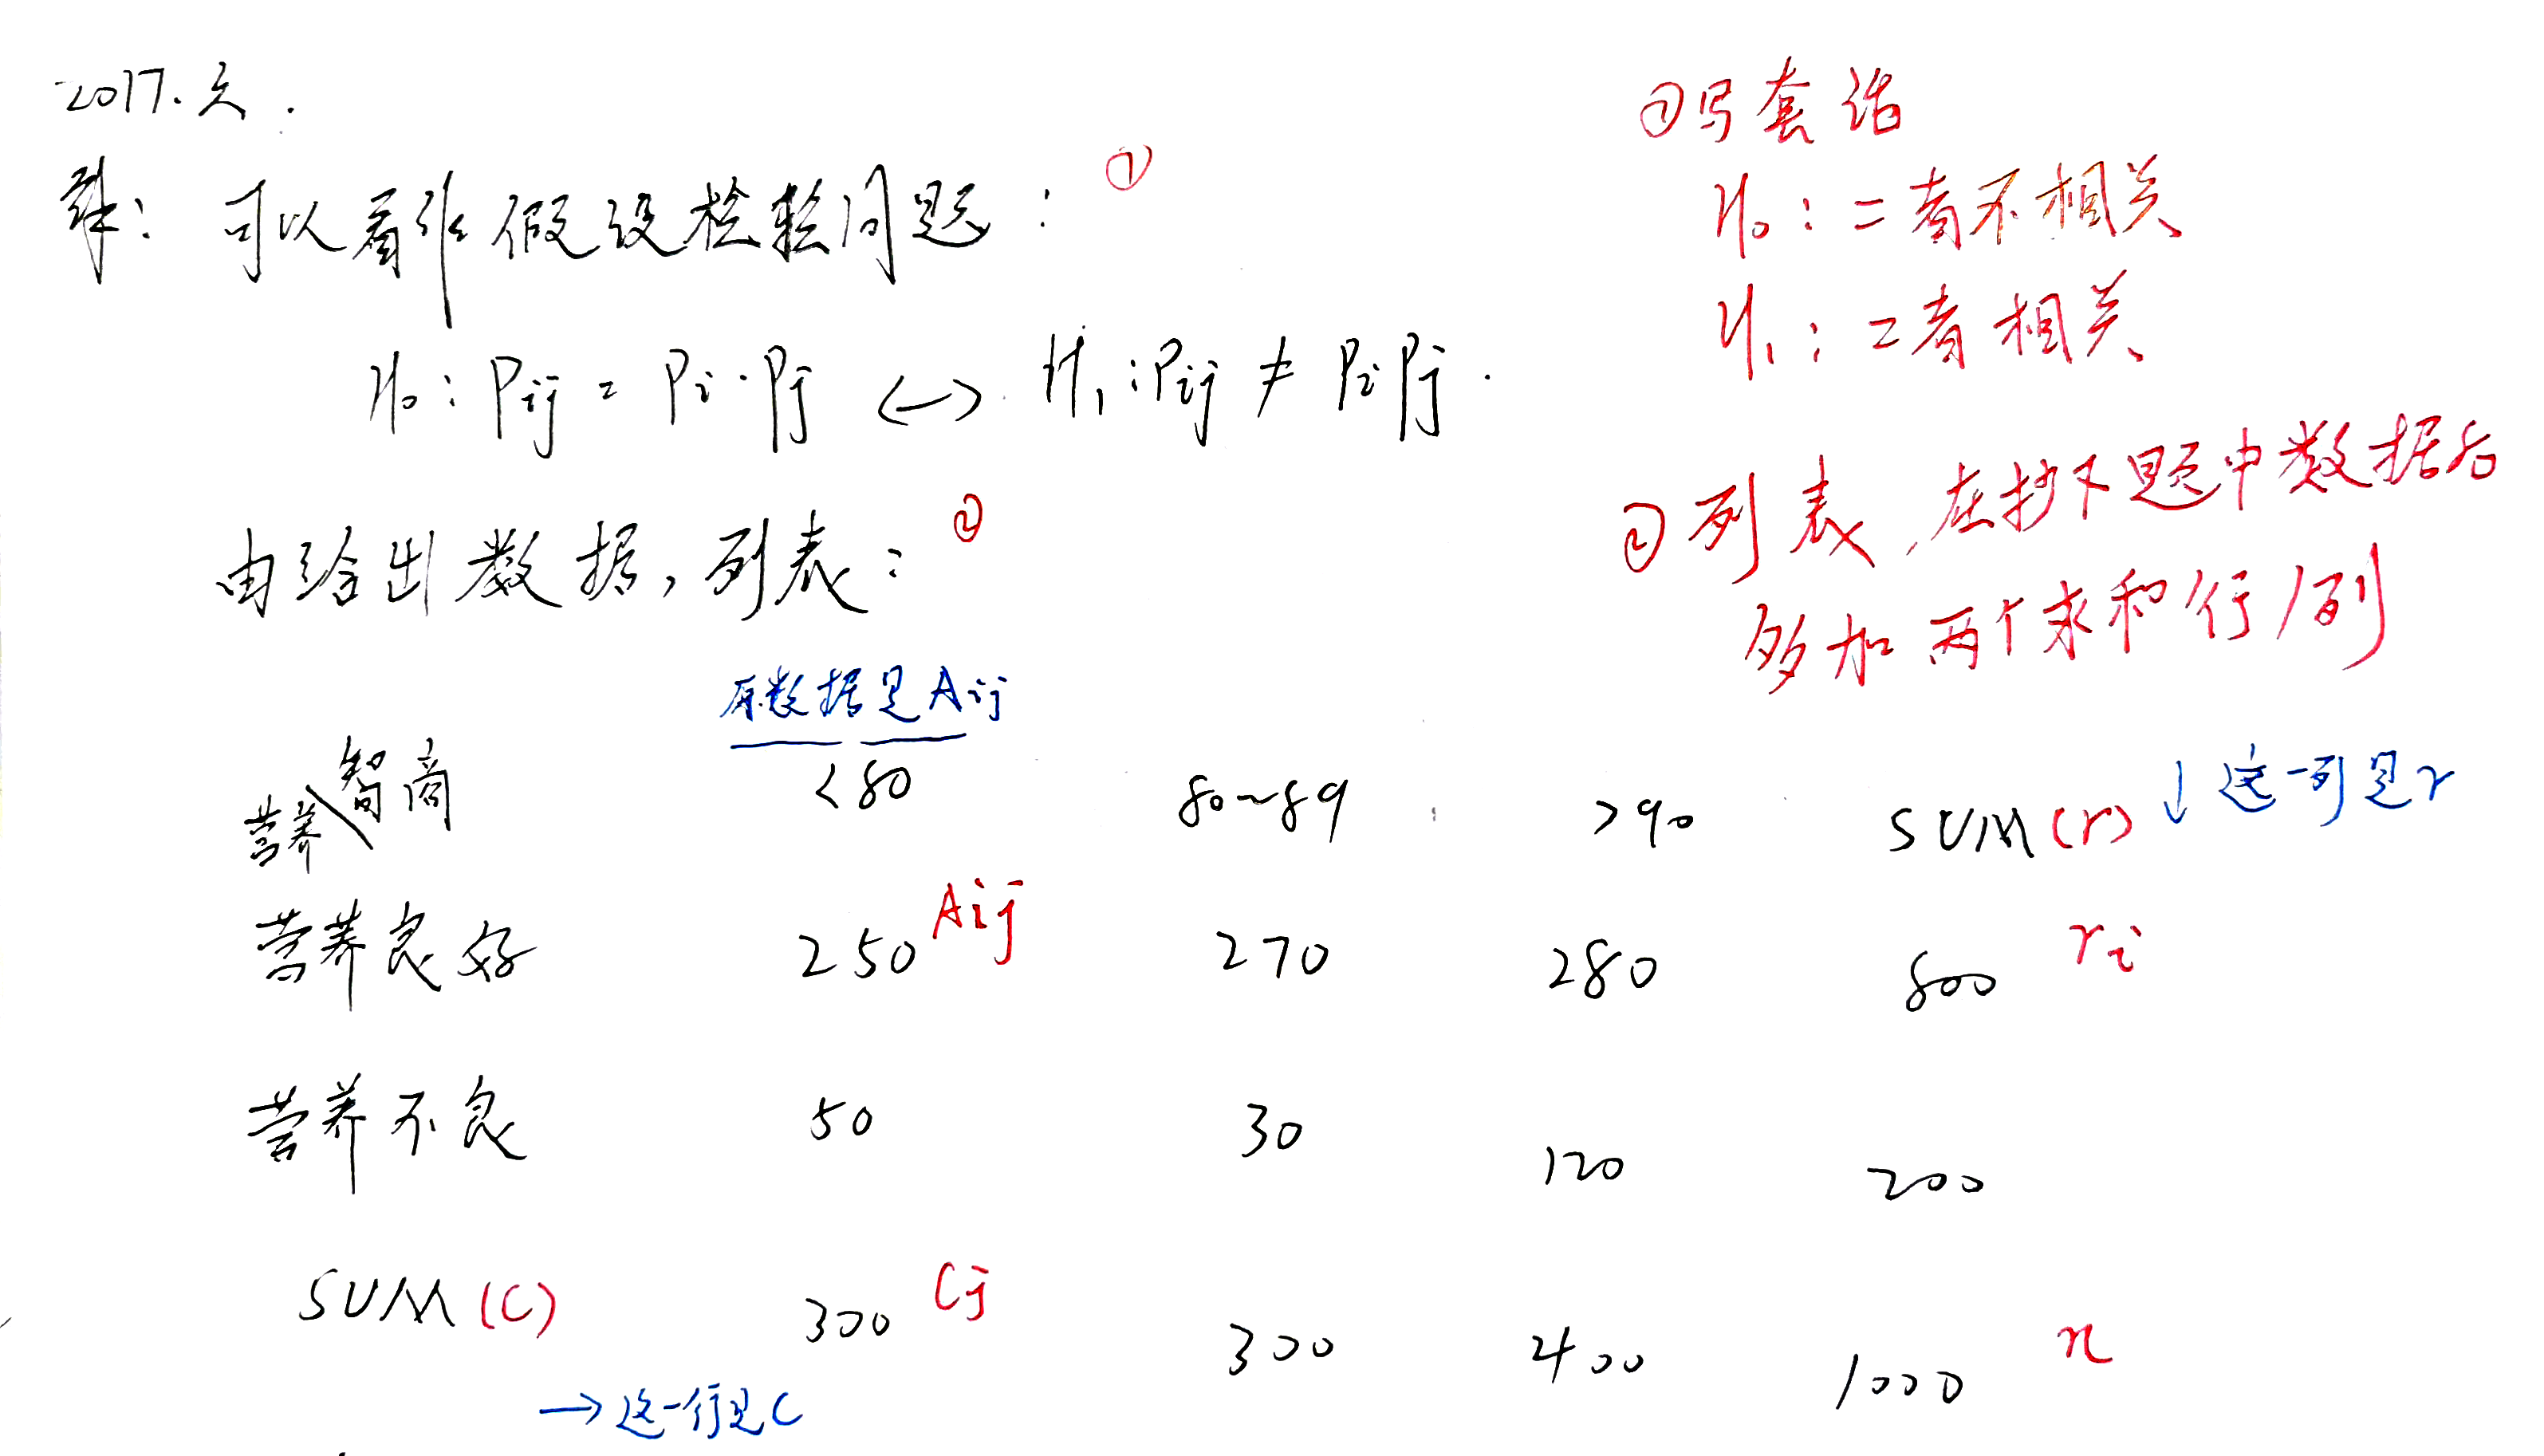 2017. 六.
解: 可以看作假设检验问题: ①
H₀: Pij = Pi·Pj ↔ H₁: Pij ≠ PiPj.
由给出数据, 列表: ②
①写套话
H₀: 二者不相关
H₁: 二者相关
②列表, 在抄下题中数据后
多加两个求和行/列
原数据是Aij
营养\智商 <80 80~89 >90 SUM(r) ↓这一列是r
营养良好 250 Aij 270 280 800 ri
营养不良 50 30 120 200
SUM(C) 300 Cj 300 400 1000 n
→这一行是C